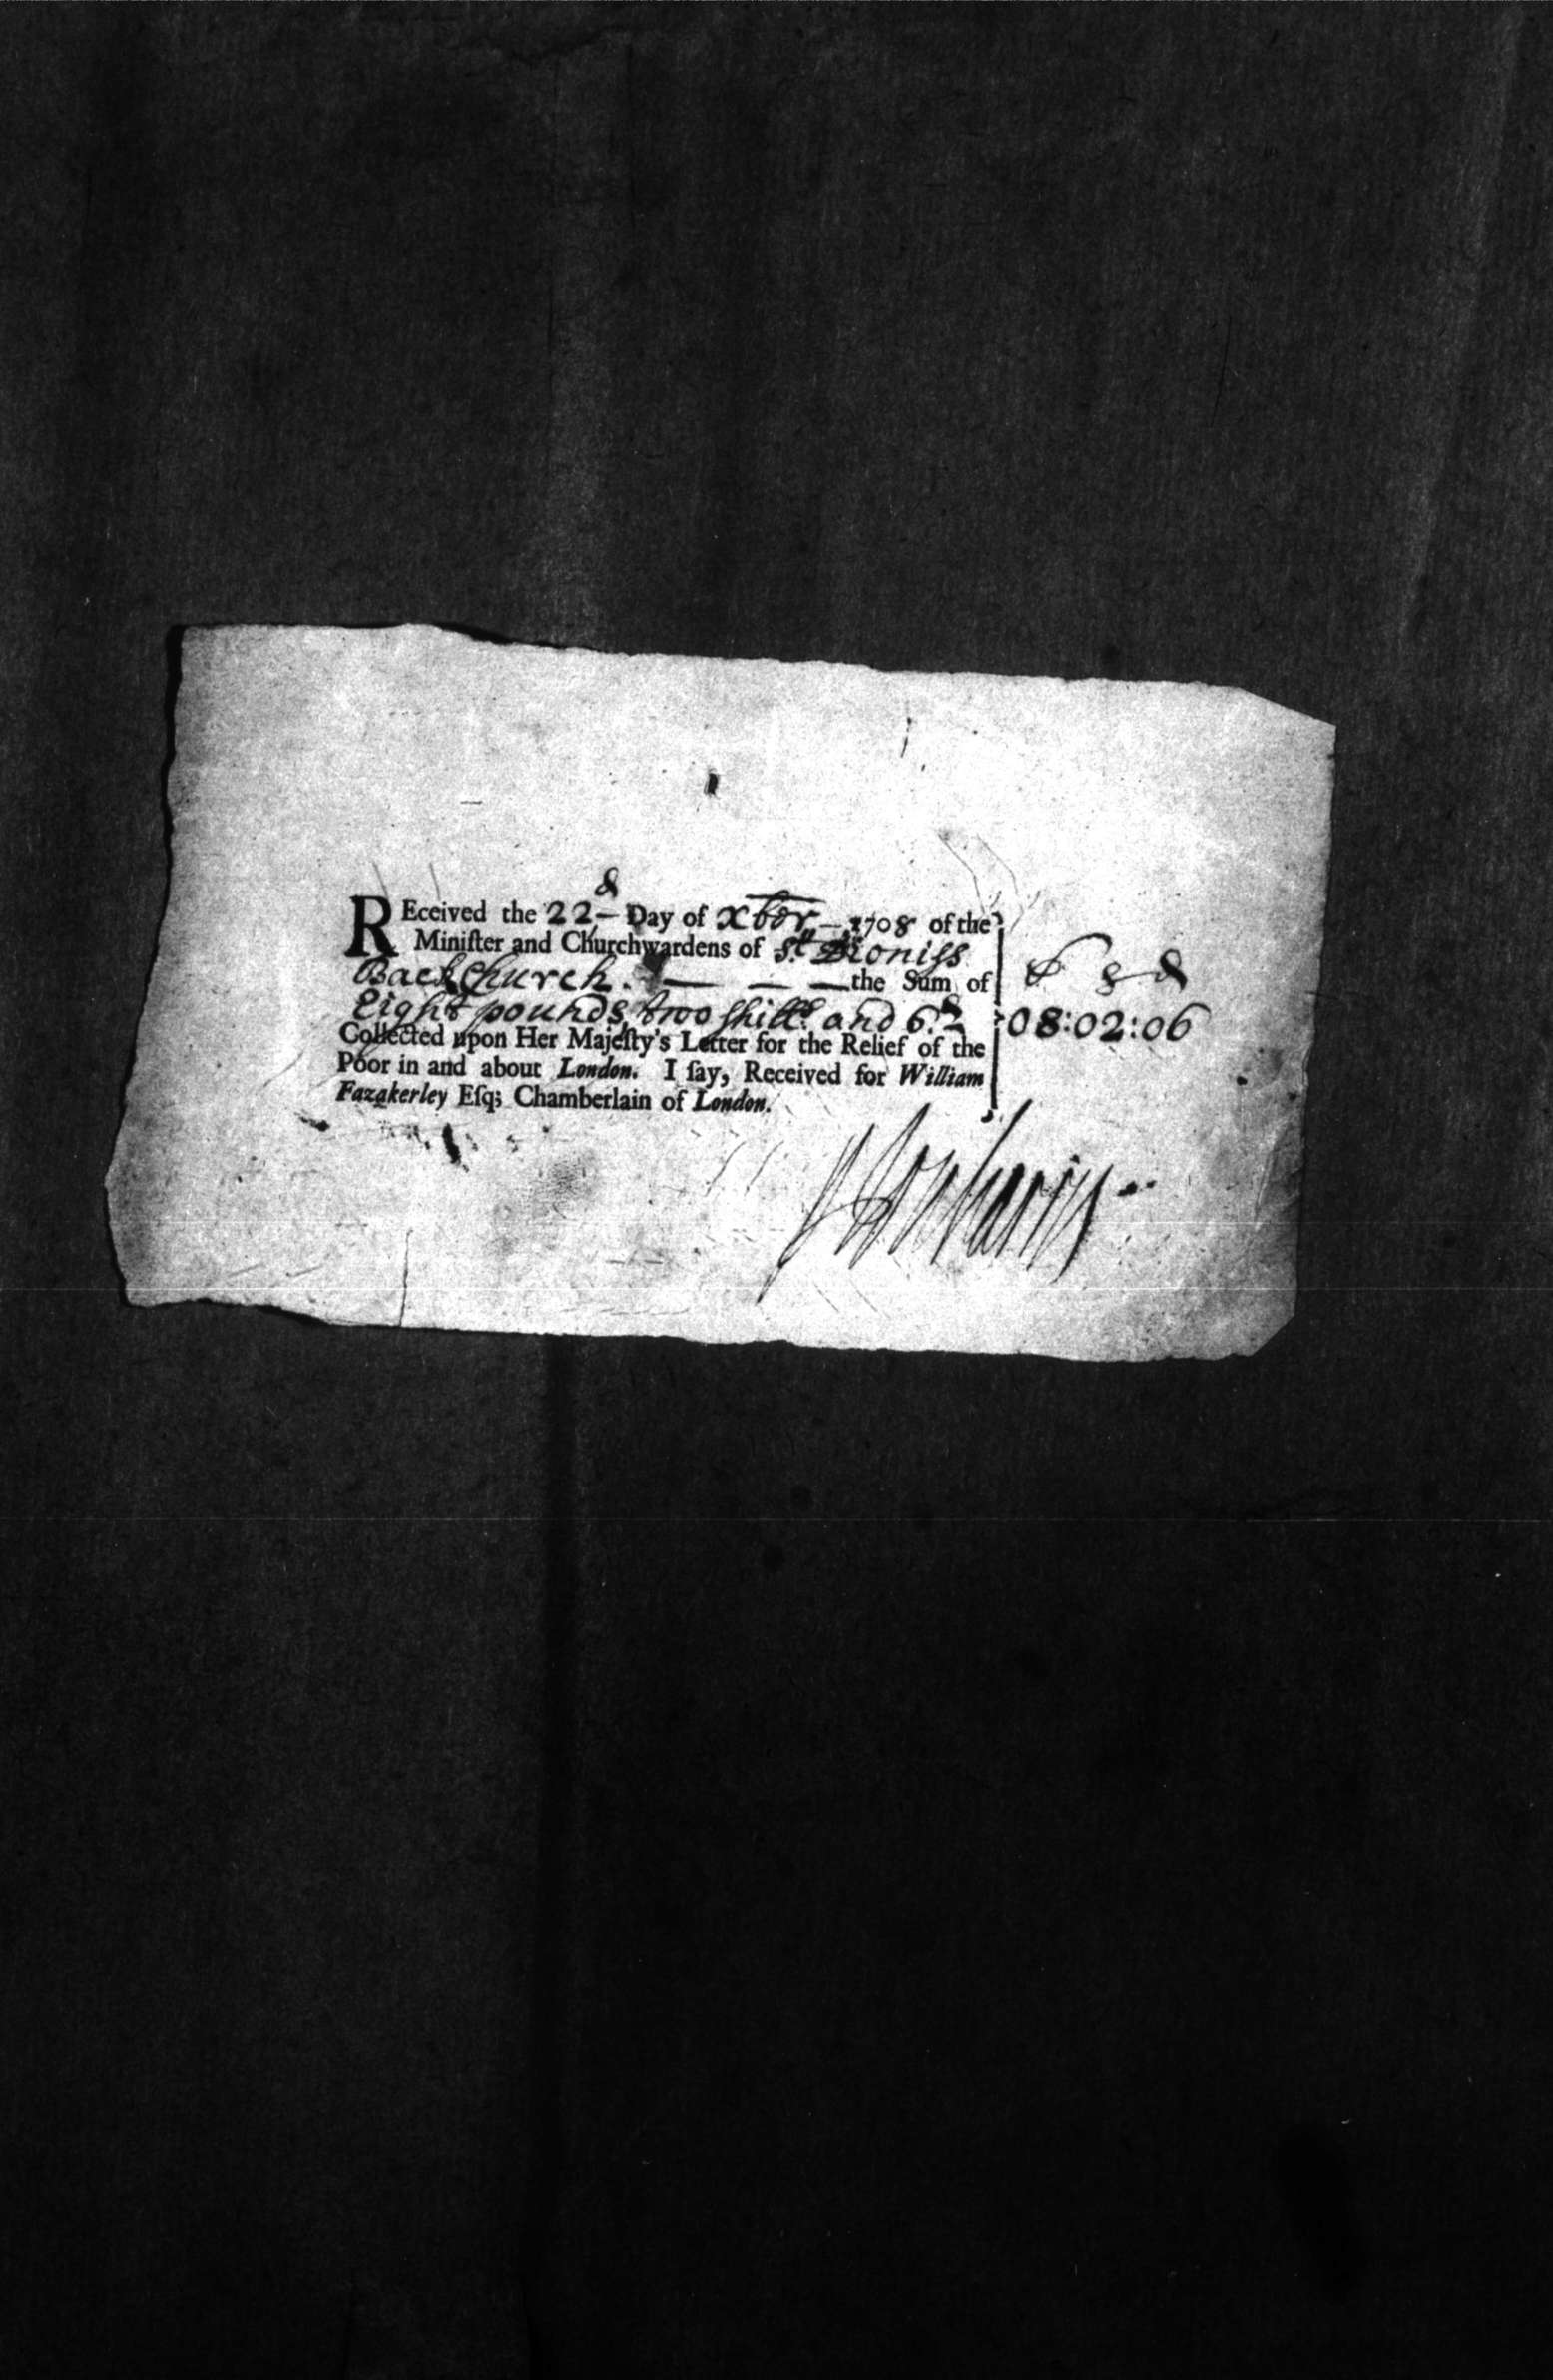 REceived the 22d Day of xber 1708 of the
Miniſter and Churchwardens of St. Dioniss
BackChurch. — — — the Sum of
Eight pounds two shills. and 6.d
£ s d
08:02:06
Collected upon Her Majeſty's Letter for the Relief of the
Poor in and about London. I ſay, Received for William
Fazakerley Eſq; Chamberlain of London.